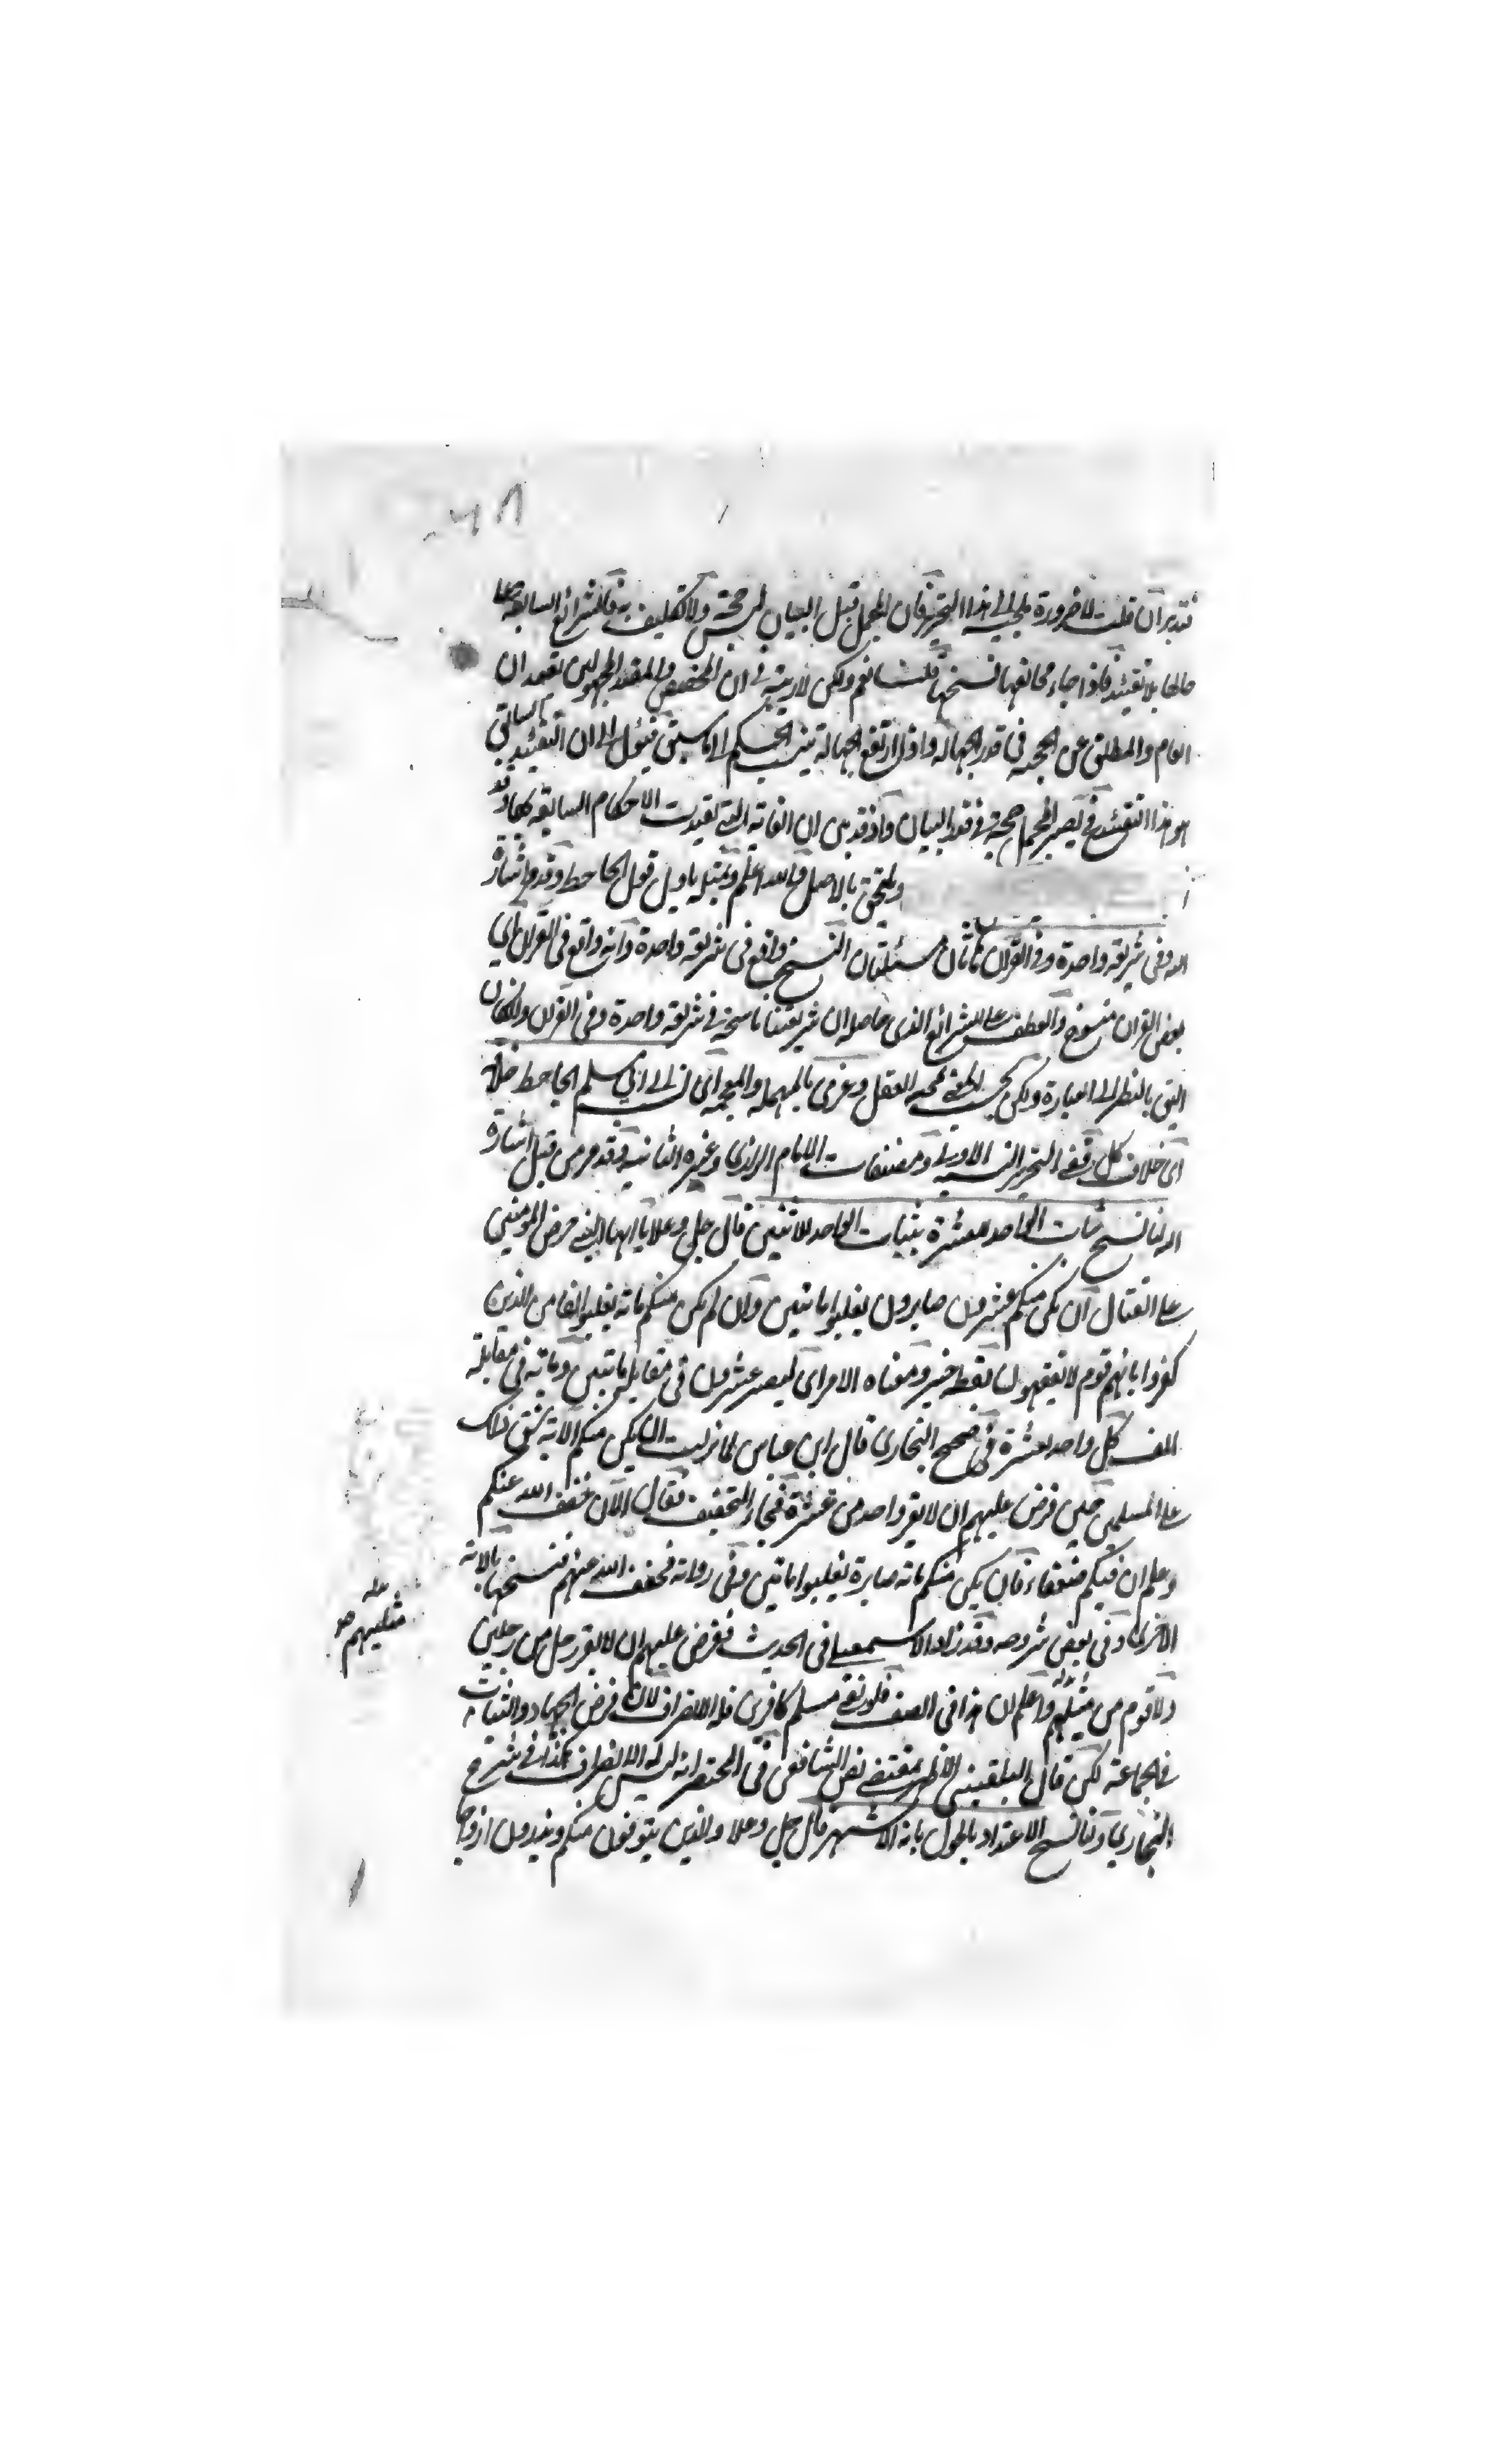 فتدبر ان قلت لا ضرورة ملجية الى هذا التحرير فان المجمل قبل البيان ليس حجة ولا تكليف به فالشرائع السابقة على
حالها بلا تقييد فاذا جاء مخالفها نسخها قلت نعم ولكن لا ريب في ان المخصص والمقيد المجهولين يقعدان
العام والمطلق عن الحجية في قدر الجهالة واذا ارتفع الجهالة يتبين الحكم الى ما سبق فيئول الى ان التقييد السابق
هو هذا التقييد فيصير المجمل حجة في قدر البيان واذ قد بين ان الغاية التي تقيدت الاحكام السابقة بها وقد
والتحق بالاصل والله اعلم وبمثله ياول قول الجاحظ وقد اشار
اليه وفي شريعة واحدة وفي القرآن هاتان مسئلتان النسخ واقع في شريعة واحدة وانه واقع في القرآن اي
بعض القرآن منسوخ والعطف على الشرائع الذي حاصله ان شريعتنا ناسخة في شريعة واحدة وفي القرآن وان كان
اليق بالنظر الى العبارة ولكن بحسب المعنى يمجه العقل وعزي بالمهملة والمعجمة اي نسب الى ابي مسلم الجاحظ خلافه
اي خلاف كل ففي التحرير النسبة الاولى ومصنفات الامام الرازي وغيره الثانية وقد مر من قبل اشارة
اليه لنا نسخ ثبات الواحد لعشرة بثبات الواحد للاثنين قال جل وعلا يا ايها النبي حرض المومنين
على القتال ان يكن منكم عشرون صابرون يغلبوا مائتين وان لم يكن منكم مائة يغلبوا الفا من الذين
كفروا بانهم قوم لا يفقهون لفظه خبر ومعناه الامر اي ليصبر عشرون في مقابلة مائتين ومائة في مقابلة
الف كل واحد لعشرة في صحيح البخاري قال ابن عباس لما نزلت ان يكن منكم الاية شق ذلك
على المسلمين حين فرض عليهم ان لا يفر واحد من عشرة فجاء التخفيف فقال الآن خفف الله عنكم
وعلم ان فيكم ضعفاء فان يكن منكم مائة صابرة يغلبوا مائتين وفي رواية فخفف الله عنهم فنسخها بالاية
الاخرى وفي بعض شروحه وقد زاد الاسمعيلي في الحديث ففرض عليهم ان لا يفر رجل من رجلين
ولا قوم من مثليهم واعلم ان هذا في الصف فلو لقي مسلم كافرين فله الانصراف لان فرض الجهاد والثبات
في الجماعة لكن قال البلقيني الاظهر بمقتضى نص الشافعي في المختصر انه ليس له الانصراف كذا في شرح
البخاري ولنا نسخ الاعتداد بالحول باية الاشهر قال جل وعلا والذين يتوفون منكم ويذرون ازواجا
مثليهم